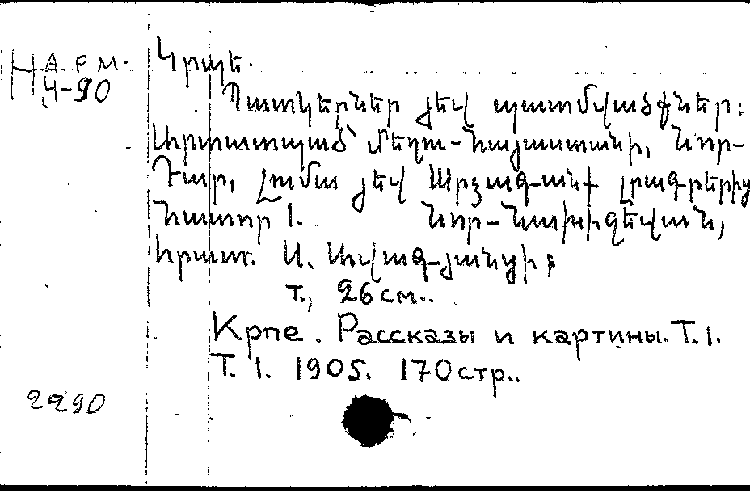 На рм.
Ч-90
Կրպե.
Պատկերներ յեվ պատմվածքներ:
Արտատպած՝ Մեղու-Հայաստանի, Նոր-
Դար, Լումա յեվ Արձագանք լրագրերից
Հատոր 1. Նոր-Նախիջեվան,
հրատ. Ս. Ավագյանցի,
т., 26 см..
Крпе. Рассказы и картины. Т. 1.
Т. 1. 1905. 170 стр..
2290